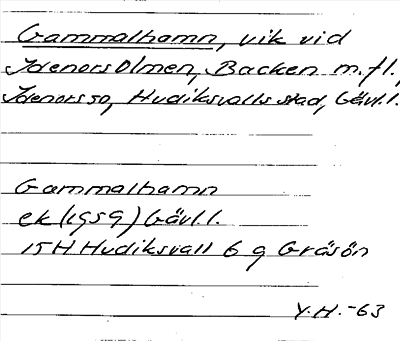 Gammalhamn, vik vid
Idenors Olmen, Backen m.fl.,
Idenors sn, Hudiksvalls stad, Gävl.l.
Gammalhamn
ek (1959) Gävl.l.
15H Hudiksvall 6 g Gräsön
Y.H.-63